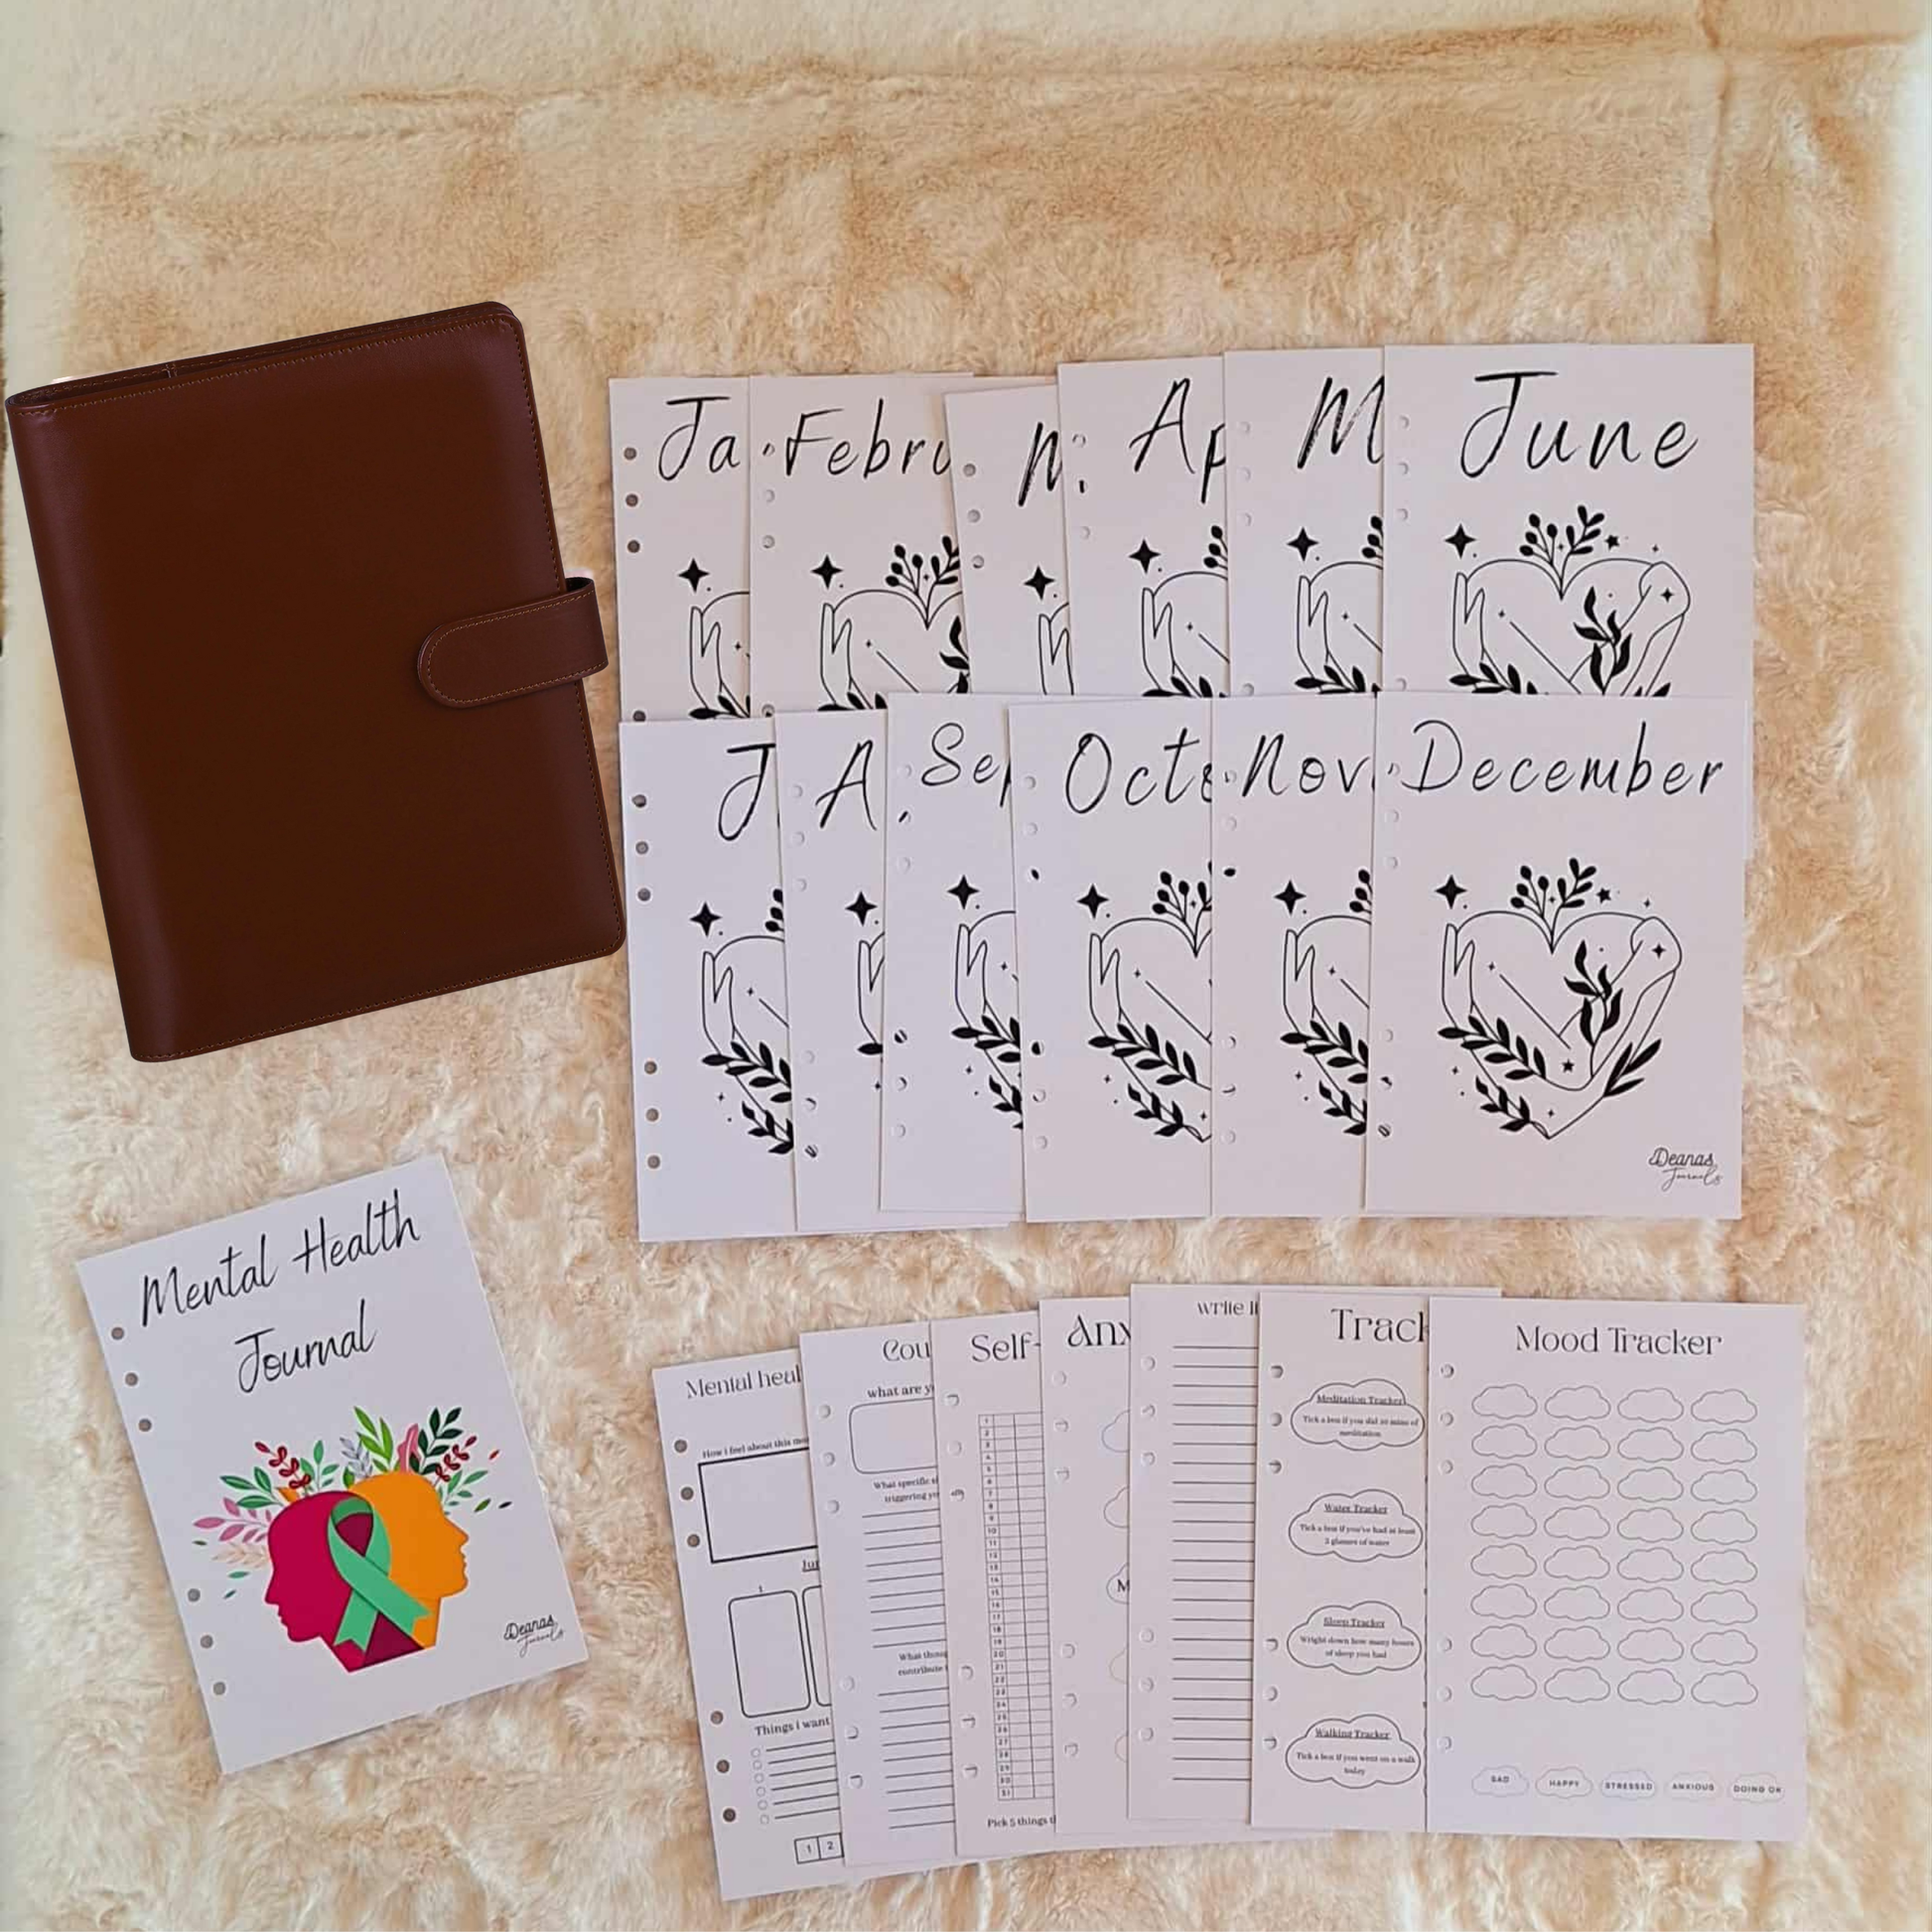 Ja
Febru
M
Ap
M
June
J
A
Sep
Octo
Nov
December
Deanas
Journals
Mental Health
Journal
Deanas
Journals
Mental heal
How i feel about this mo
Jun
1
Things i want
1 2
Cou
what are y
What specific
triggering yo
What thoug
contribute
Self-
1
2
3
4
5
6
7
8
9
10
11
12
13
14
15
16
17
18
19
20
21
22
23
24
25
26
27
28
29
30
31
Pick 5 things t
Anx
M
write it
Track
Meditation Tracker
Tick a box if you did 10 mins of
meditation
Water Tracker
Tick a box if you've had at least
3 glasses of water
Sleep Tracker
Wright down how many hours
of sleep you had
Walking Tracker
Tick a box if you went on a walk
today
Mood Tracker
SAD HAPPY STRESSED ANXIOUS DOING OK